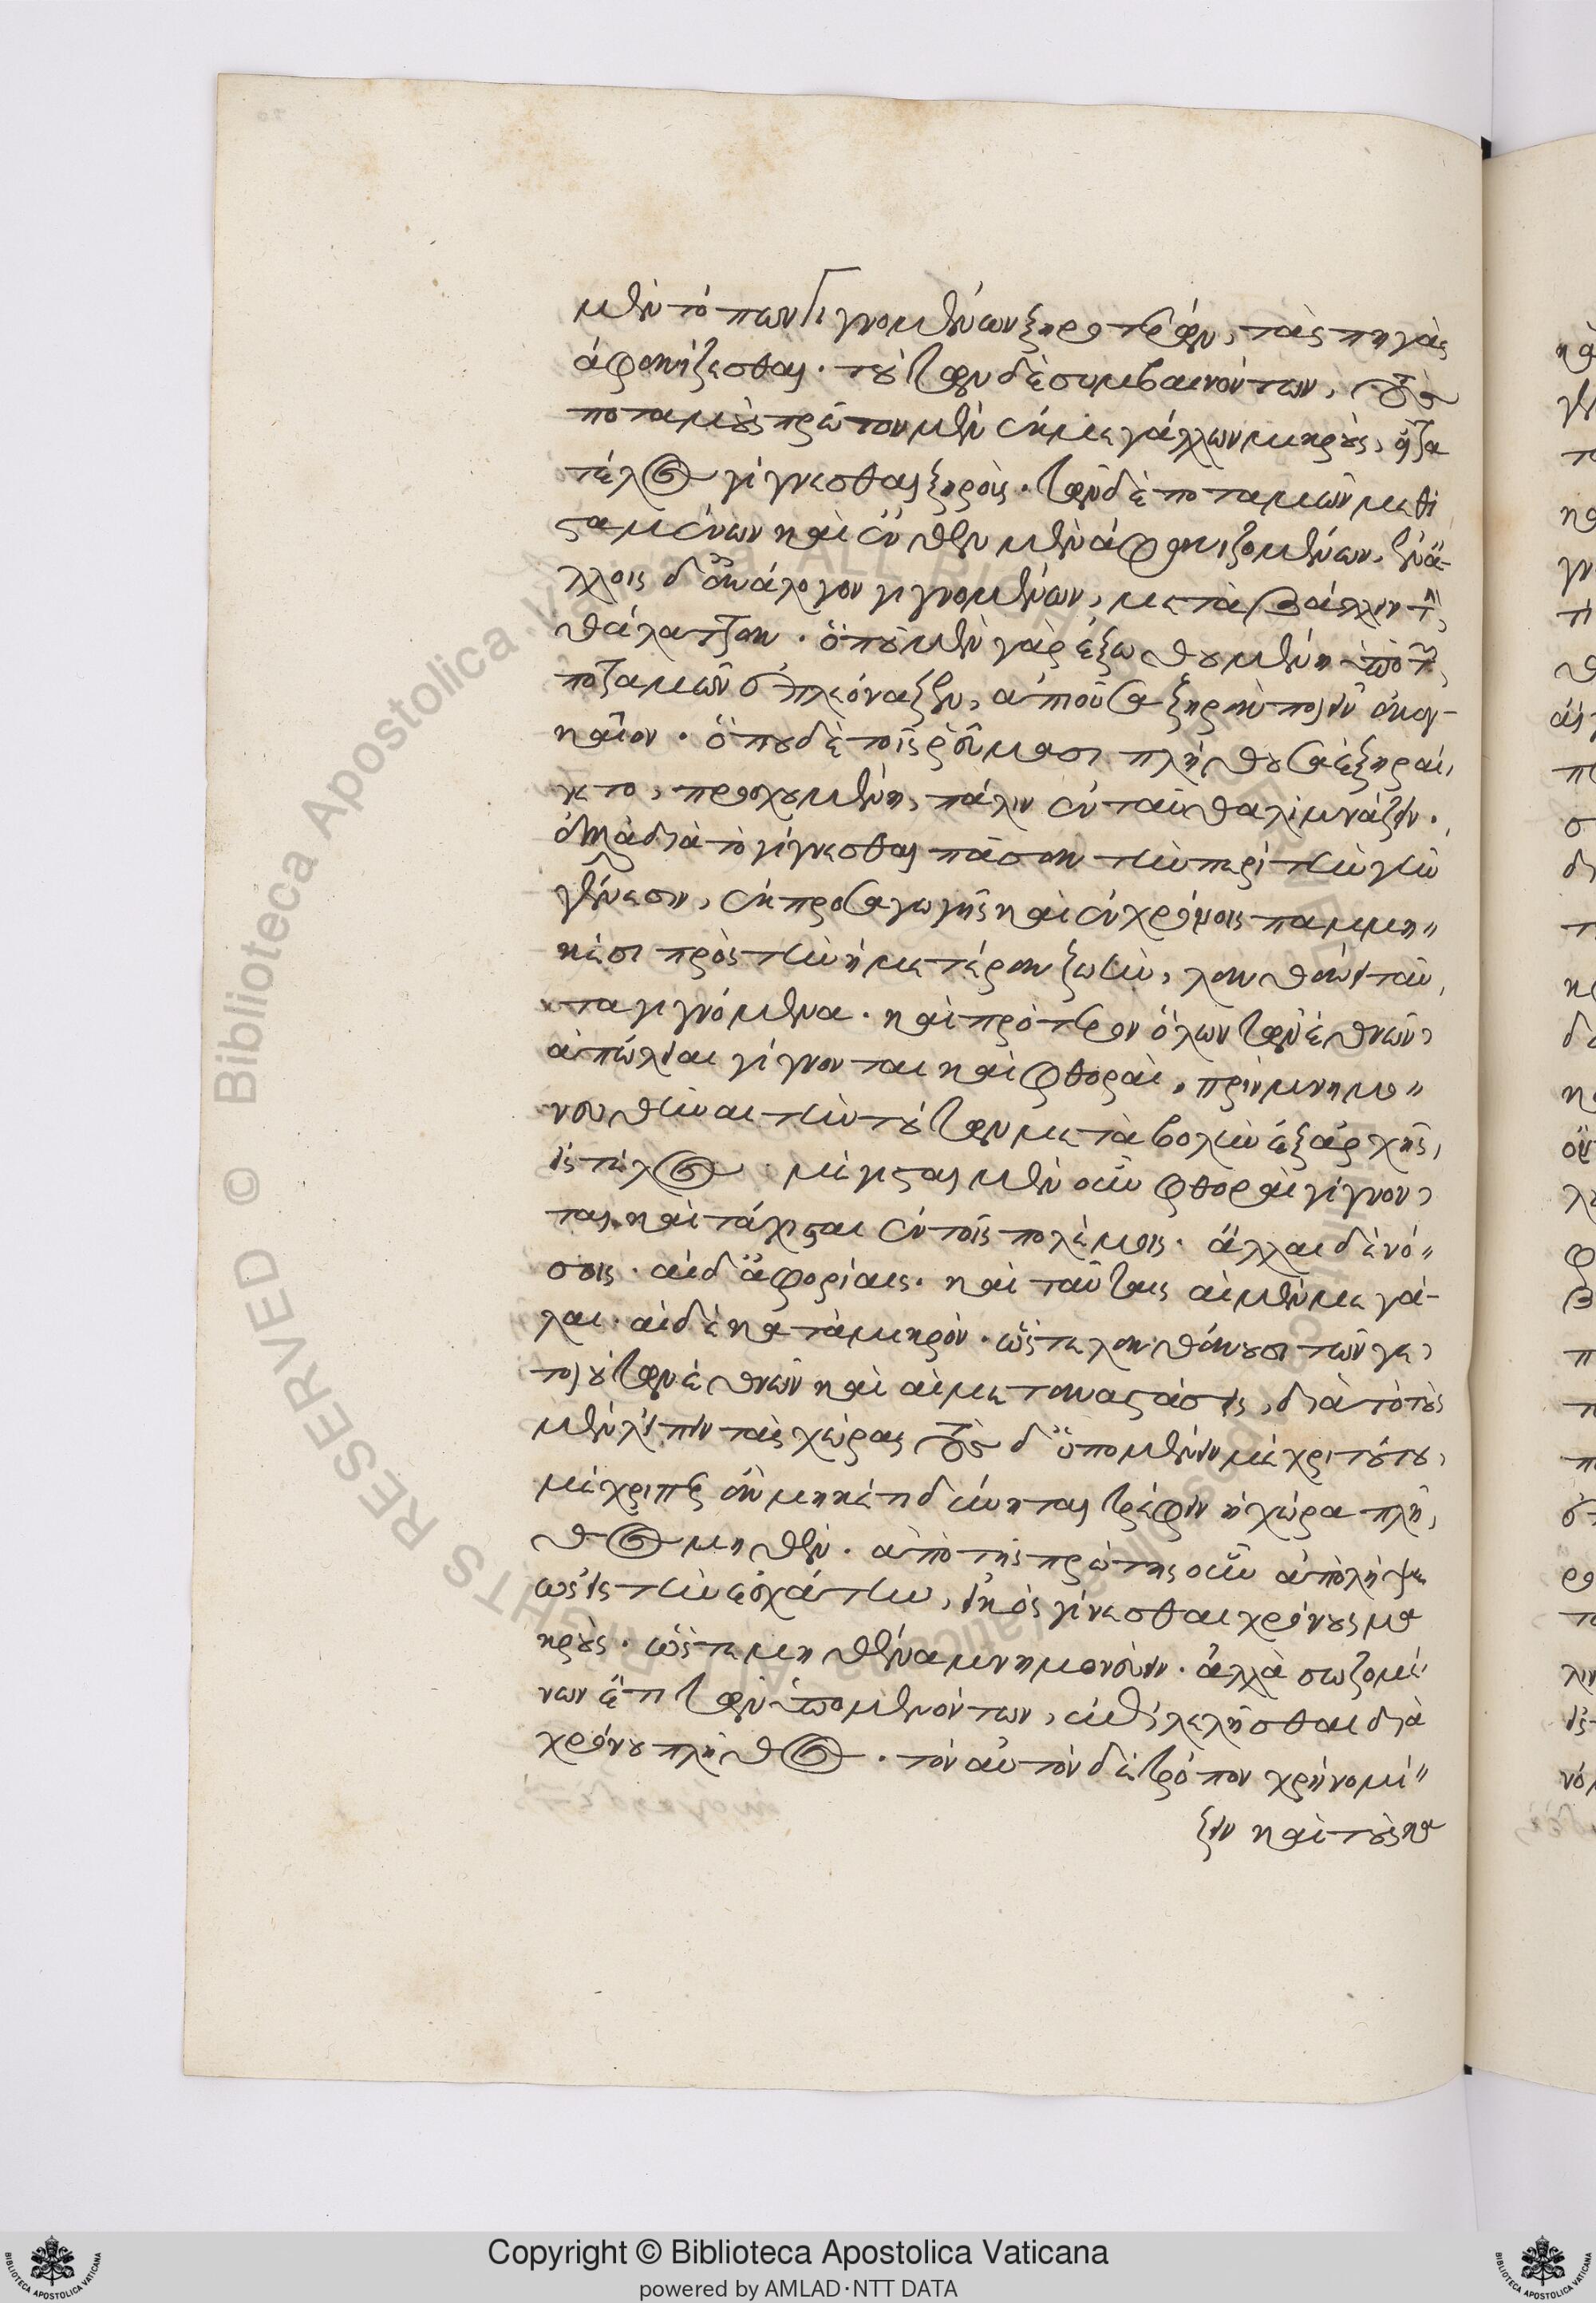 μὲν τόπων γιγνομένων ξηροτέρων, τὰς πηγὰς
ἀφανίζεσθαι. τούτων δὲ συμβαινόντων, τοὺς
ποταμοὺς πρῶτον μὲν ἐκ μεγάλων μικροὺς, εἶτα
τέλος γίγνεσθαι ξηρούς. τῶν δὲ ποταμῶν μεθι
σταμένων καὶ ἔνθεν μὲν ἀφανιζομένων, ἐν ἄ-
λλοις δ' ἀνάλογον γιγνομένων, μεταβάλλειν τὴν
θάλατταν. ὅπου μὲν γὰρ ἐξωθουμένη ὑπὸ τῶν
ποταμῶν ἐπλεόναζεν, ἀπιοῦσα ξηρὰν ποιεῖν ἀναγ-
καῖον. ὅπου δὲ τοῖς ῥεύμασι πλήθουσα ἐξηραί,
νετο, προσχουμένη, πάλιν ἐνταῦθα λιμνάζειν.
ἀλλὰ διὰ τὸ γίγνεσθαι πᾶσαν τὴν περὶ τὴν γῆν
γένεσιν, ἐκ προσαγωγῆς καὶ ἐν χρόνοις παμμη-
κέσι πρὸς τὴν ἡμετέραν ζωὴν, λανθάνει ταῦ,
τα γιγνόμενα. καὶ πρότερον ὅλων τῶν ἐθνῶν,
ἀπώλειαι γίγνονται καὶ φθοραὶ, πρὶν μνημο-
νευθῆναι τὴν τούτων μεταβολὴν ἐξ ἀρχῆς,
εἰς τέλος. μέγισται μὲν οὖν φθοραὶ γίγνον,
ται καὶ τάχισται ἐν τοῖς πολέμοις. ἄλλαι δὲ νό-
σοις. αἱ δ' ἀφορίαις. καὶ ταύταις αἱ μὲν μεγά-
λαι. αἱ δὲ κατὰ μικρὸν. ὥστε λανθάνουσι τῶν γε,
τοιούτων ἐθνῶν καὶ αἱ μεταναστάσεις, διὰ τὸ τοὺς
μὲν λείπειν τὰς χώρας τοὺς δ' ὑπομένειν μέχρι τούτου,
μέχρι περ ἂν μηκέτι δύνηται τρέφειν ἡ χώρα πλῆ,
θος μηθέν. ἀπὸ τῆς πρώτης οὖν ἀπολείψεως
ὡς εἰς τὴν ἐσχάτην, εἰκὸς γίνεσθαι χρόνους μα
κρούς. ὥστε μηθένα μνημονεύειν. ἀλλὰ σωζομέ-
νων ἔτι τῶν ὑπομενόντων, ἐπιλελῆσθαι διὰ
χρόνου πλῆθος. τὸν αὐτὸν δὲ τρόπον χρὴ νομί-
ζειν καὶ τοὺς κα